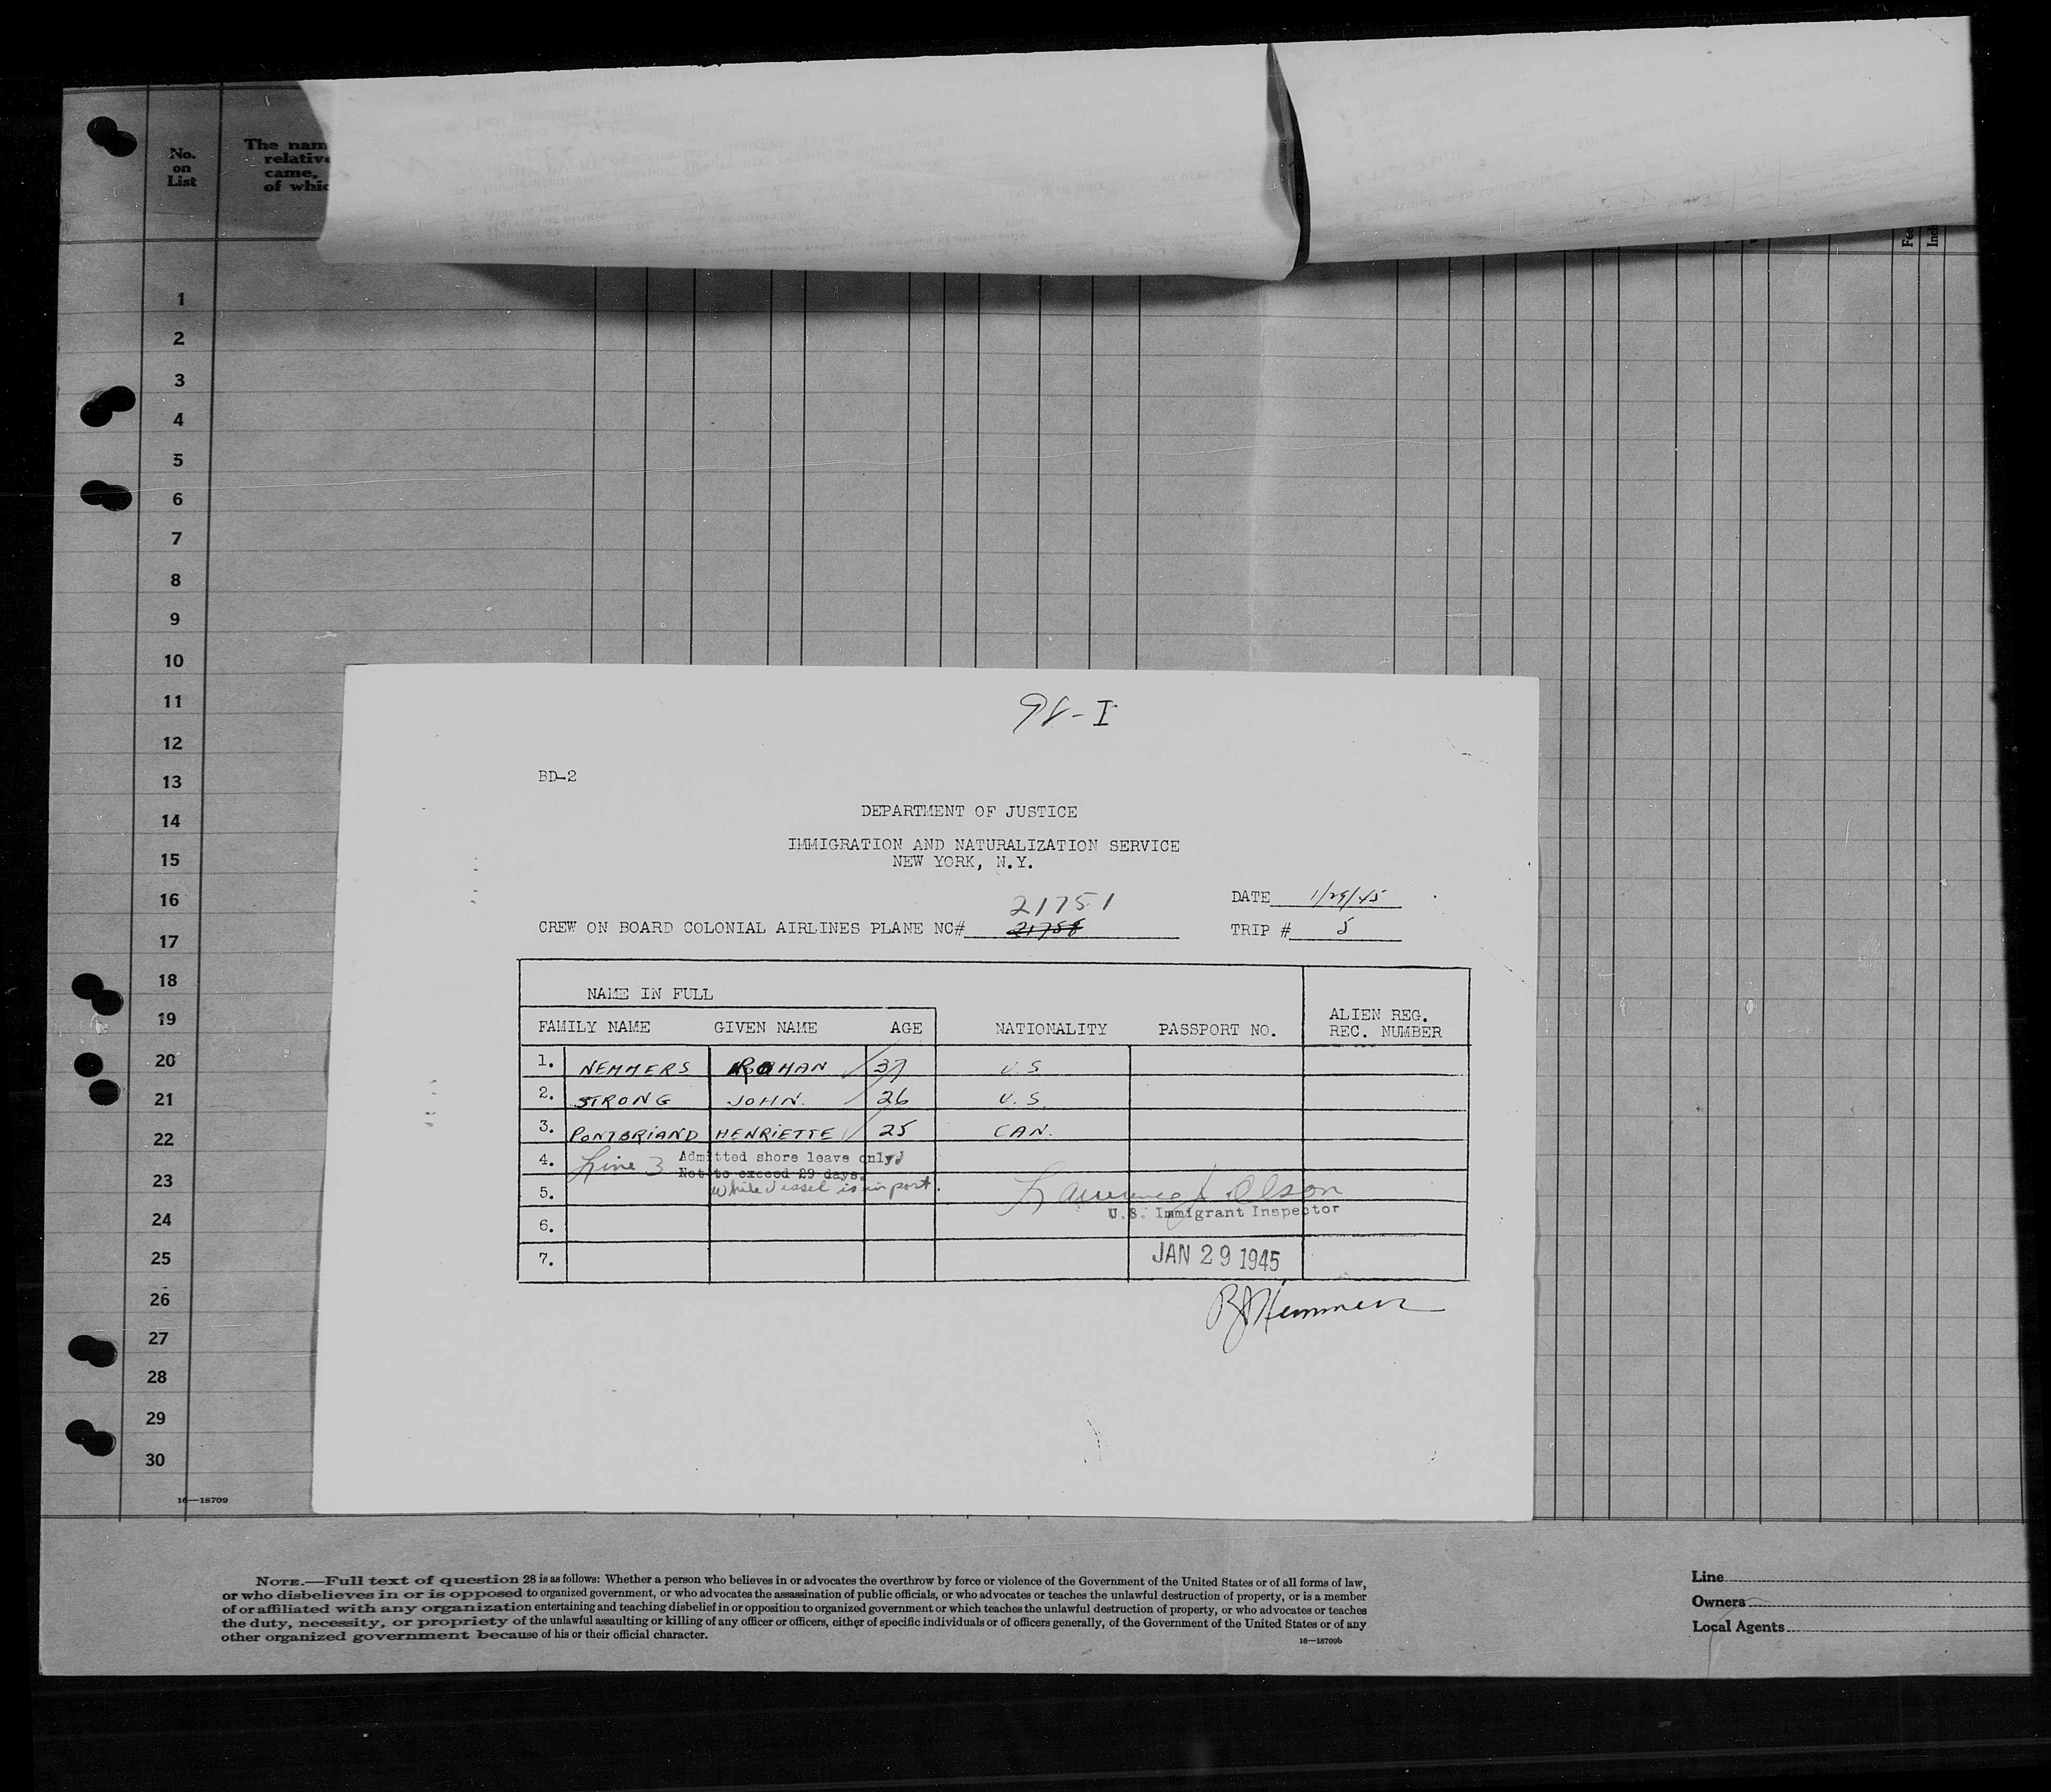 No.
on
List
The nam
relative
came,
of whic
Fe
Ind
1
2
3
4
5
6
7
8
9
10
11
12
13
14
15
16
17
18
19
20
21
22
23
24
25
26
27
28
29
30
16—18709
98-I
BD-2
DEPARTMENT OF JUSTICE
IMMIGRATION AND NATURALIZATION SERVICE
NEW YORK, N.Y.
21751
DATE 1/29/45
CREW ON BOARD COLONIAL AIRLINES PLANE NC# 21758
TRIP # 5
NAME IN FULL
FAMILY NAME GIVEN NAME AGE NATIONALITY PASSPORT NO. ALIEN REG. REC. NUMBER
1. NEMMERS ROMAN 37 U.S
2. STRONG JOHN. 26 U.S.
3. PONTBRIAND HENRIETTE 25 CAN.
4. Line 3 Admitted shore leave only
Not to exceed 29 days.
5. while vessel is in port. Lawrence J Olson
U.S. Immigrant Inspector
6.
7. JAN 29 1945
RJ Nemmers
NOTE.—Full text of question 28 is as follows: Whether a person who believes in or advocates the overthrow by force or violence of the Government of the United States or of all forms of law,
or who disbelieves in or is opposed to organized government, or who advocates the assassination of public officials, or who advocates or teaches the unlawful destruction of property, or is a member
of or affiliated with any organization entertaining and teaching disbelief in or opposition to organized government or which teaches the unlawful destruction of property, or who advocates or teaches
the duty, necessity, or propriety of the unlawful assaulting or killing of any officer or officers, either of specific individuals or of officers generally, of the Government of the United States or of any
other organized government because of his or their official character.
16—18709b
Line
Owners
Local Agents